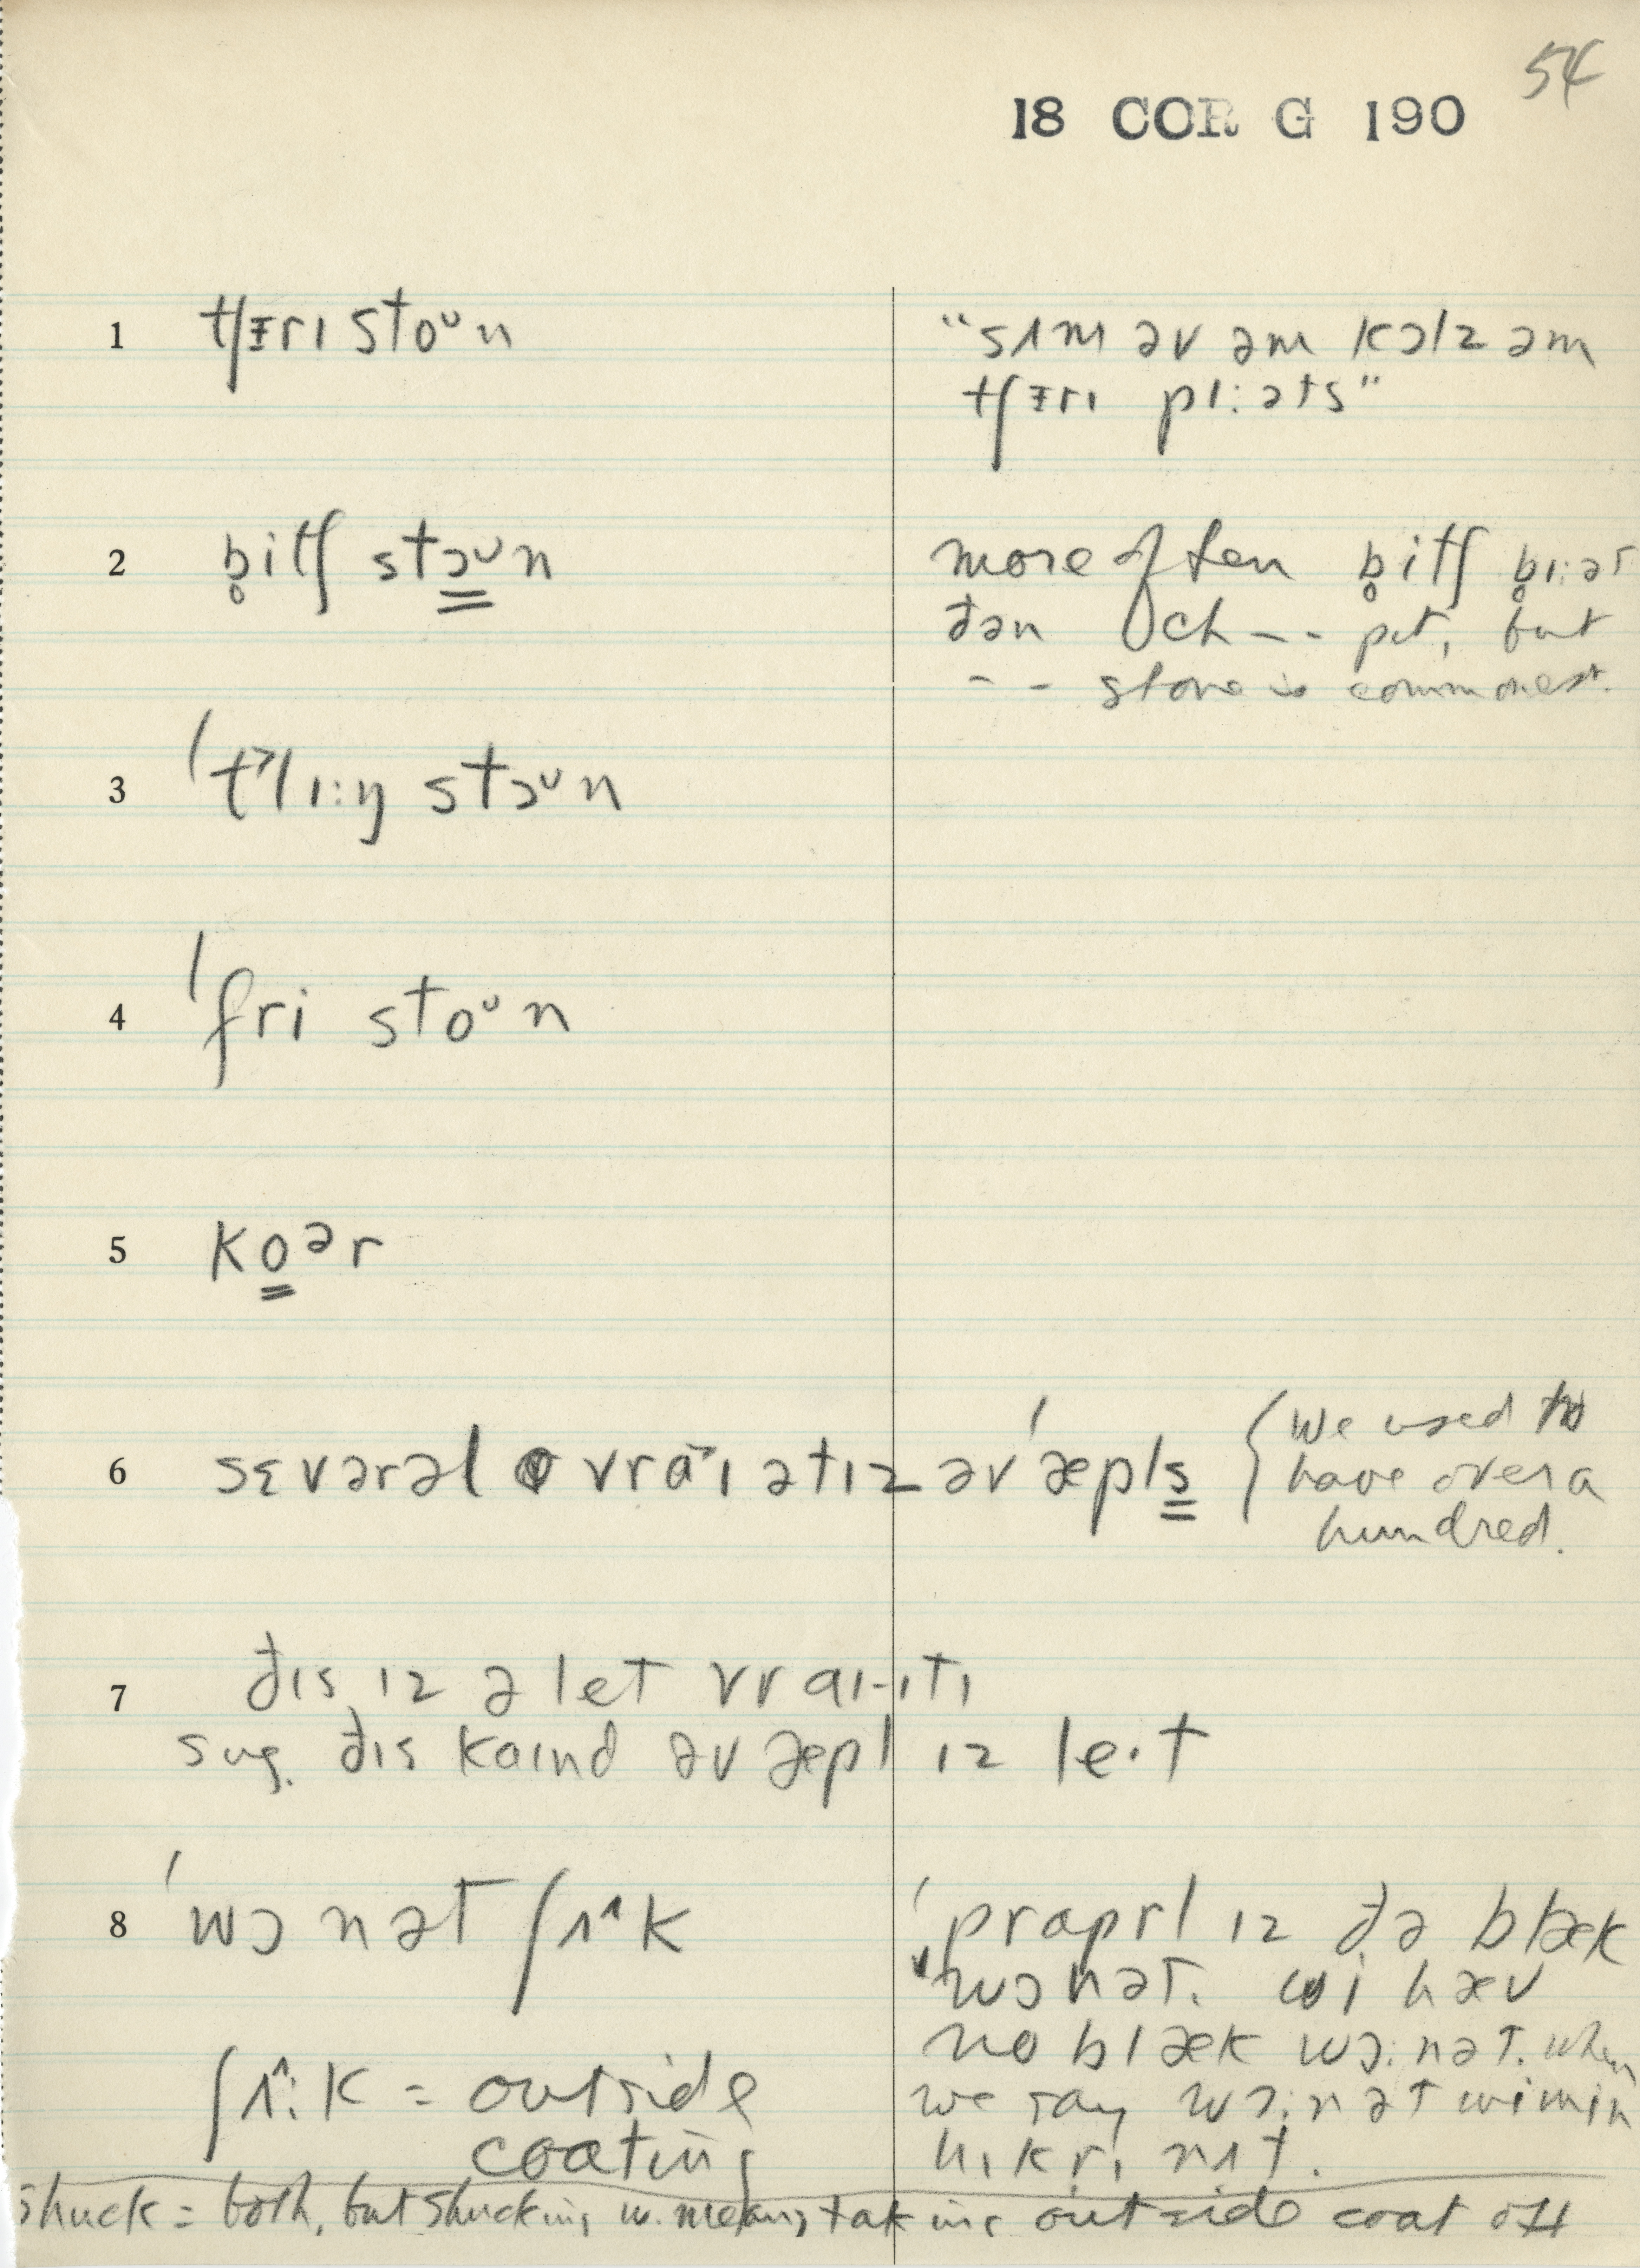 54
18 COR G 190
1 tʃɪri stoᵘn
"sʌm əv əm kɔlz əm
tʃɪrɪ pɪ:əts"
2 b̥itʃ stɔᵘn
more often b̥itʃ b̥ɪ:ət
ðən ch-- pit, but
-- stone is commonest.
3 'klɪ:ŋ stɔᵘn
4 'fri stoᵘn
5 koᵊr
6 sɛvərəl vraɪətɪz əv 'æpls
{We used to
have over a
hundred.
7 ðɪs ɪz ə let vraɪ-ɪtɪ
sug. ðɪs kaɪnd əv æpl ɪz le·t
8 'wɔnət ʃʌ^k
'praprl ɪz ðə blæk
wɔnət. wi hæv
no blæk wɔ:nət. when
we say wɔ:nət wi min
hɪkrɪ nʌt.
ʃʌ^:k = outside
coating
Shuck = both, but shucking w. means taking outside coat off